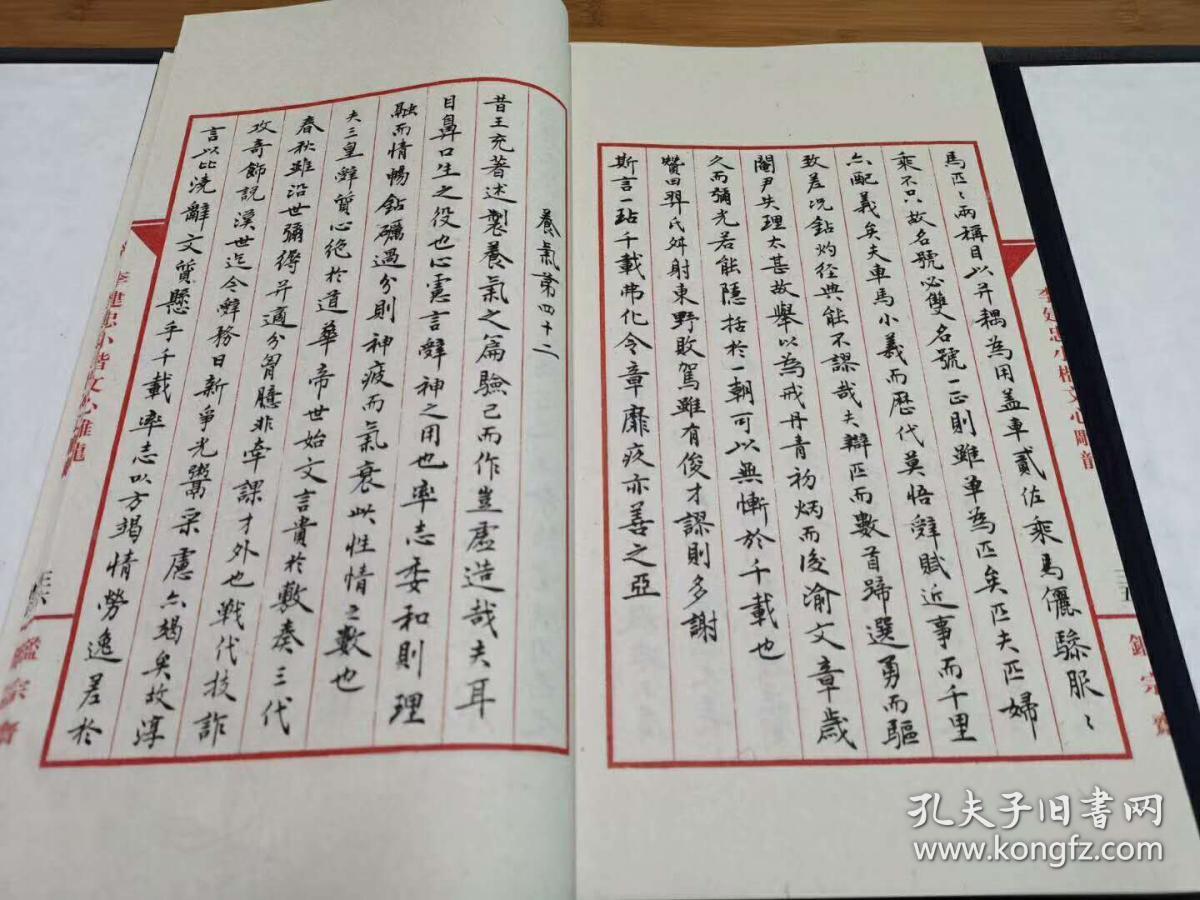 馬匹〻兩稱目以并耦為用盖車貳佐乘馬儷驂服〻
乘不只故名號必雙名號一正則雖單為匹矣匹夫匹婦
亦配義矣夫車馬小義而歷代莫悟辭賦近事而千里
致差况鉆灼经典能不謬哉夫辯匹而數首蹄選勇而驅
閹尹失理太甚故舉以為戒丹青初炳而後渝文章歲
久而彌光若能隱括於一朝可以無慚於千載也
贊曰羿氏舛射東野敗駕雖有俊才謬則多謝
斯言一玷千載弗化令章靡疚亦善之亞
養氣第四十二
昔王充著述製養氣之篇驗己而作豈虛造哉夫耳
目鼻口生之役也心慮言辭神之用也率志委和則理
融而情暢鉆礪過分則神疲而氣衰此性情之數也
夫三皇辭質心绝於道華帝世始文言貴於敷奏三代
春秋雖沿世彌縟并適分胷臆非牵課才外也戰代技詐
攻奇飾説漢世迄今辭務日新爭光鬻采慮亦竭矣故淳
言以比澆辭文質懸乎千載率志以方竭情勞逸差於
李建忠小楷文心雕龍
鑑宗齋
李建忠小楷文心雕龍
鑑宗齋
孔夫子旧书网
www.kongfz.com